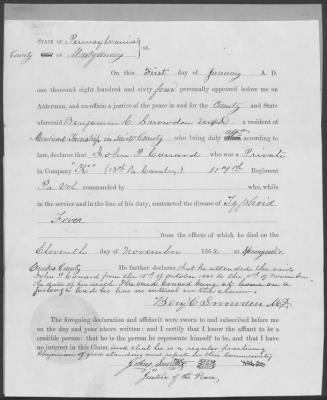 STATE OF Pennsylvania
County of Montgomery } ss.
On this First day of January A. D.
one thousand eight hundred and sixty four personally appeared before me an
Alderman, and ex-officio a justice of the peace in and for the County and State
aforesaid Benjamin C Snowden M.D. a resident of
Township in said County who being duly according to
law, declares that John P. Conard who was a Private
in Company "K" (13th Pa Cavalry) 117th Regiment
Pa Vol commanded by who, while
in the service and in the line of his duty, contracted the disease of Typhoid
Fever
from the effects of which he died on the
Eleventh day of November 1862 at
County. He further declares that he attended the said
John P Conard from the of October 1862 to the of November
the date of his death. The said Conard being at home on a
furlough and he has no interest in the claim.
Benj C Snowden M.D.
The foregoing declaration and affidavit were sworn to and subscribed before me
on the day and year above written: and I certify that I know the affiant to be a
credible person: that he is the person he represents himself to be, and that I have
no interest in this Claim. and that he is a regular practicing
Physician of good standing and repute in this community
Smith
Justice of the Peace,